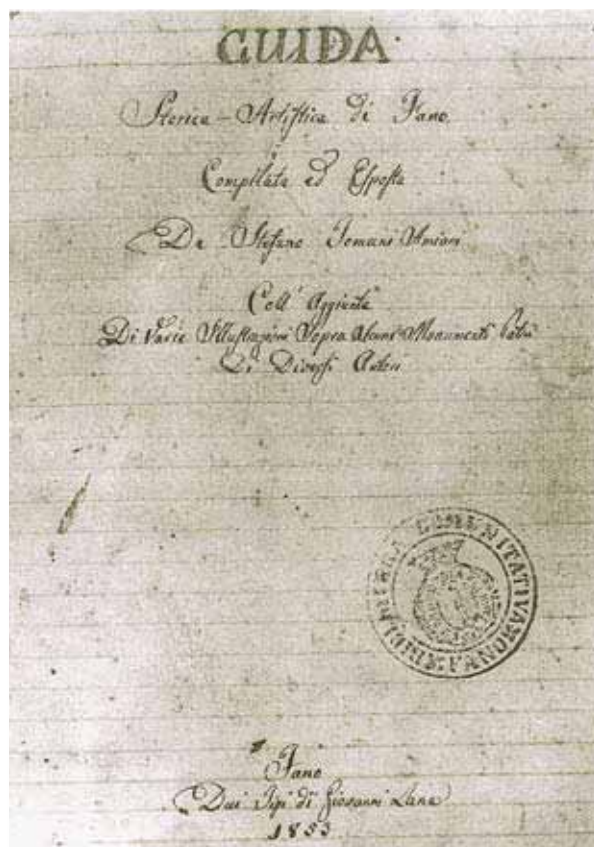 GUIDA
Storica - Artistica di Fano
Compilata ed Esposta
Da Stefano Tomani Amiani
Coll' Aggiunta
Di Varie Illustrazioni Sopra Alcuni Monumenti Patri
Di Diversi Autori
COMUNITATIVA FANO
Fano
Dai Tipi di Giovanni Lana
1853